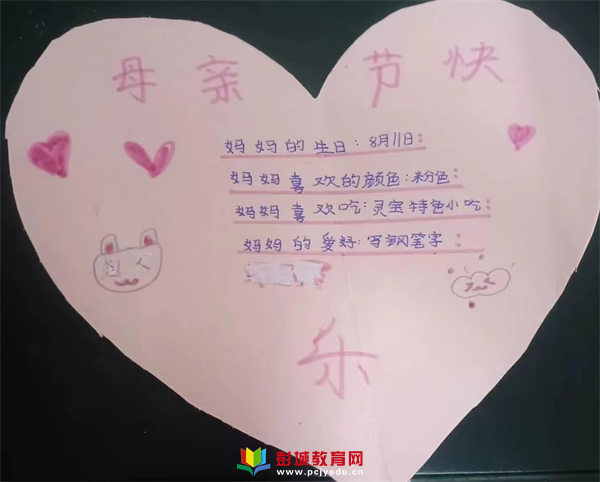 母亲节快
妈妈的生日：8月11日
妈妈喜欢的颜色：粉色
妈妈喜欢吃：灵宝特色小吃
妈妈的爱好：写钢笔字
乐
彭城教育网
www.pcjyedu.cn